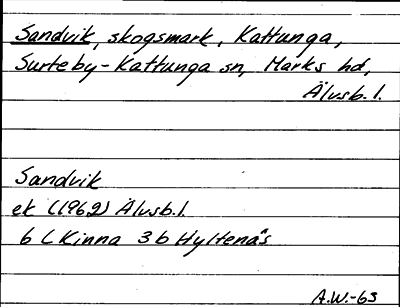 Sandvik, skogsmark, Kattunga,
Surteby-Kattunga sn, Marks hd,
Älvsb. l.
Sandvik
ek (1962) Älvsb. l.
6 C Kinna 3 b Hyltenäs
A.W.-63